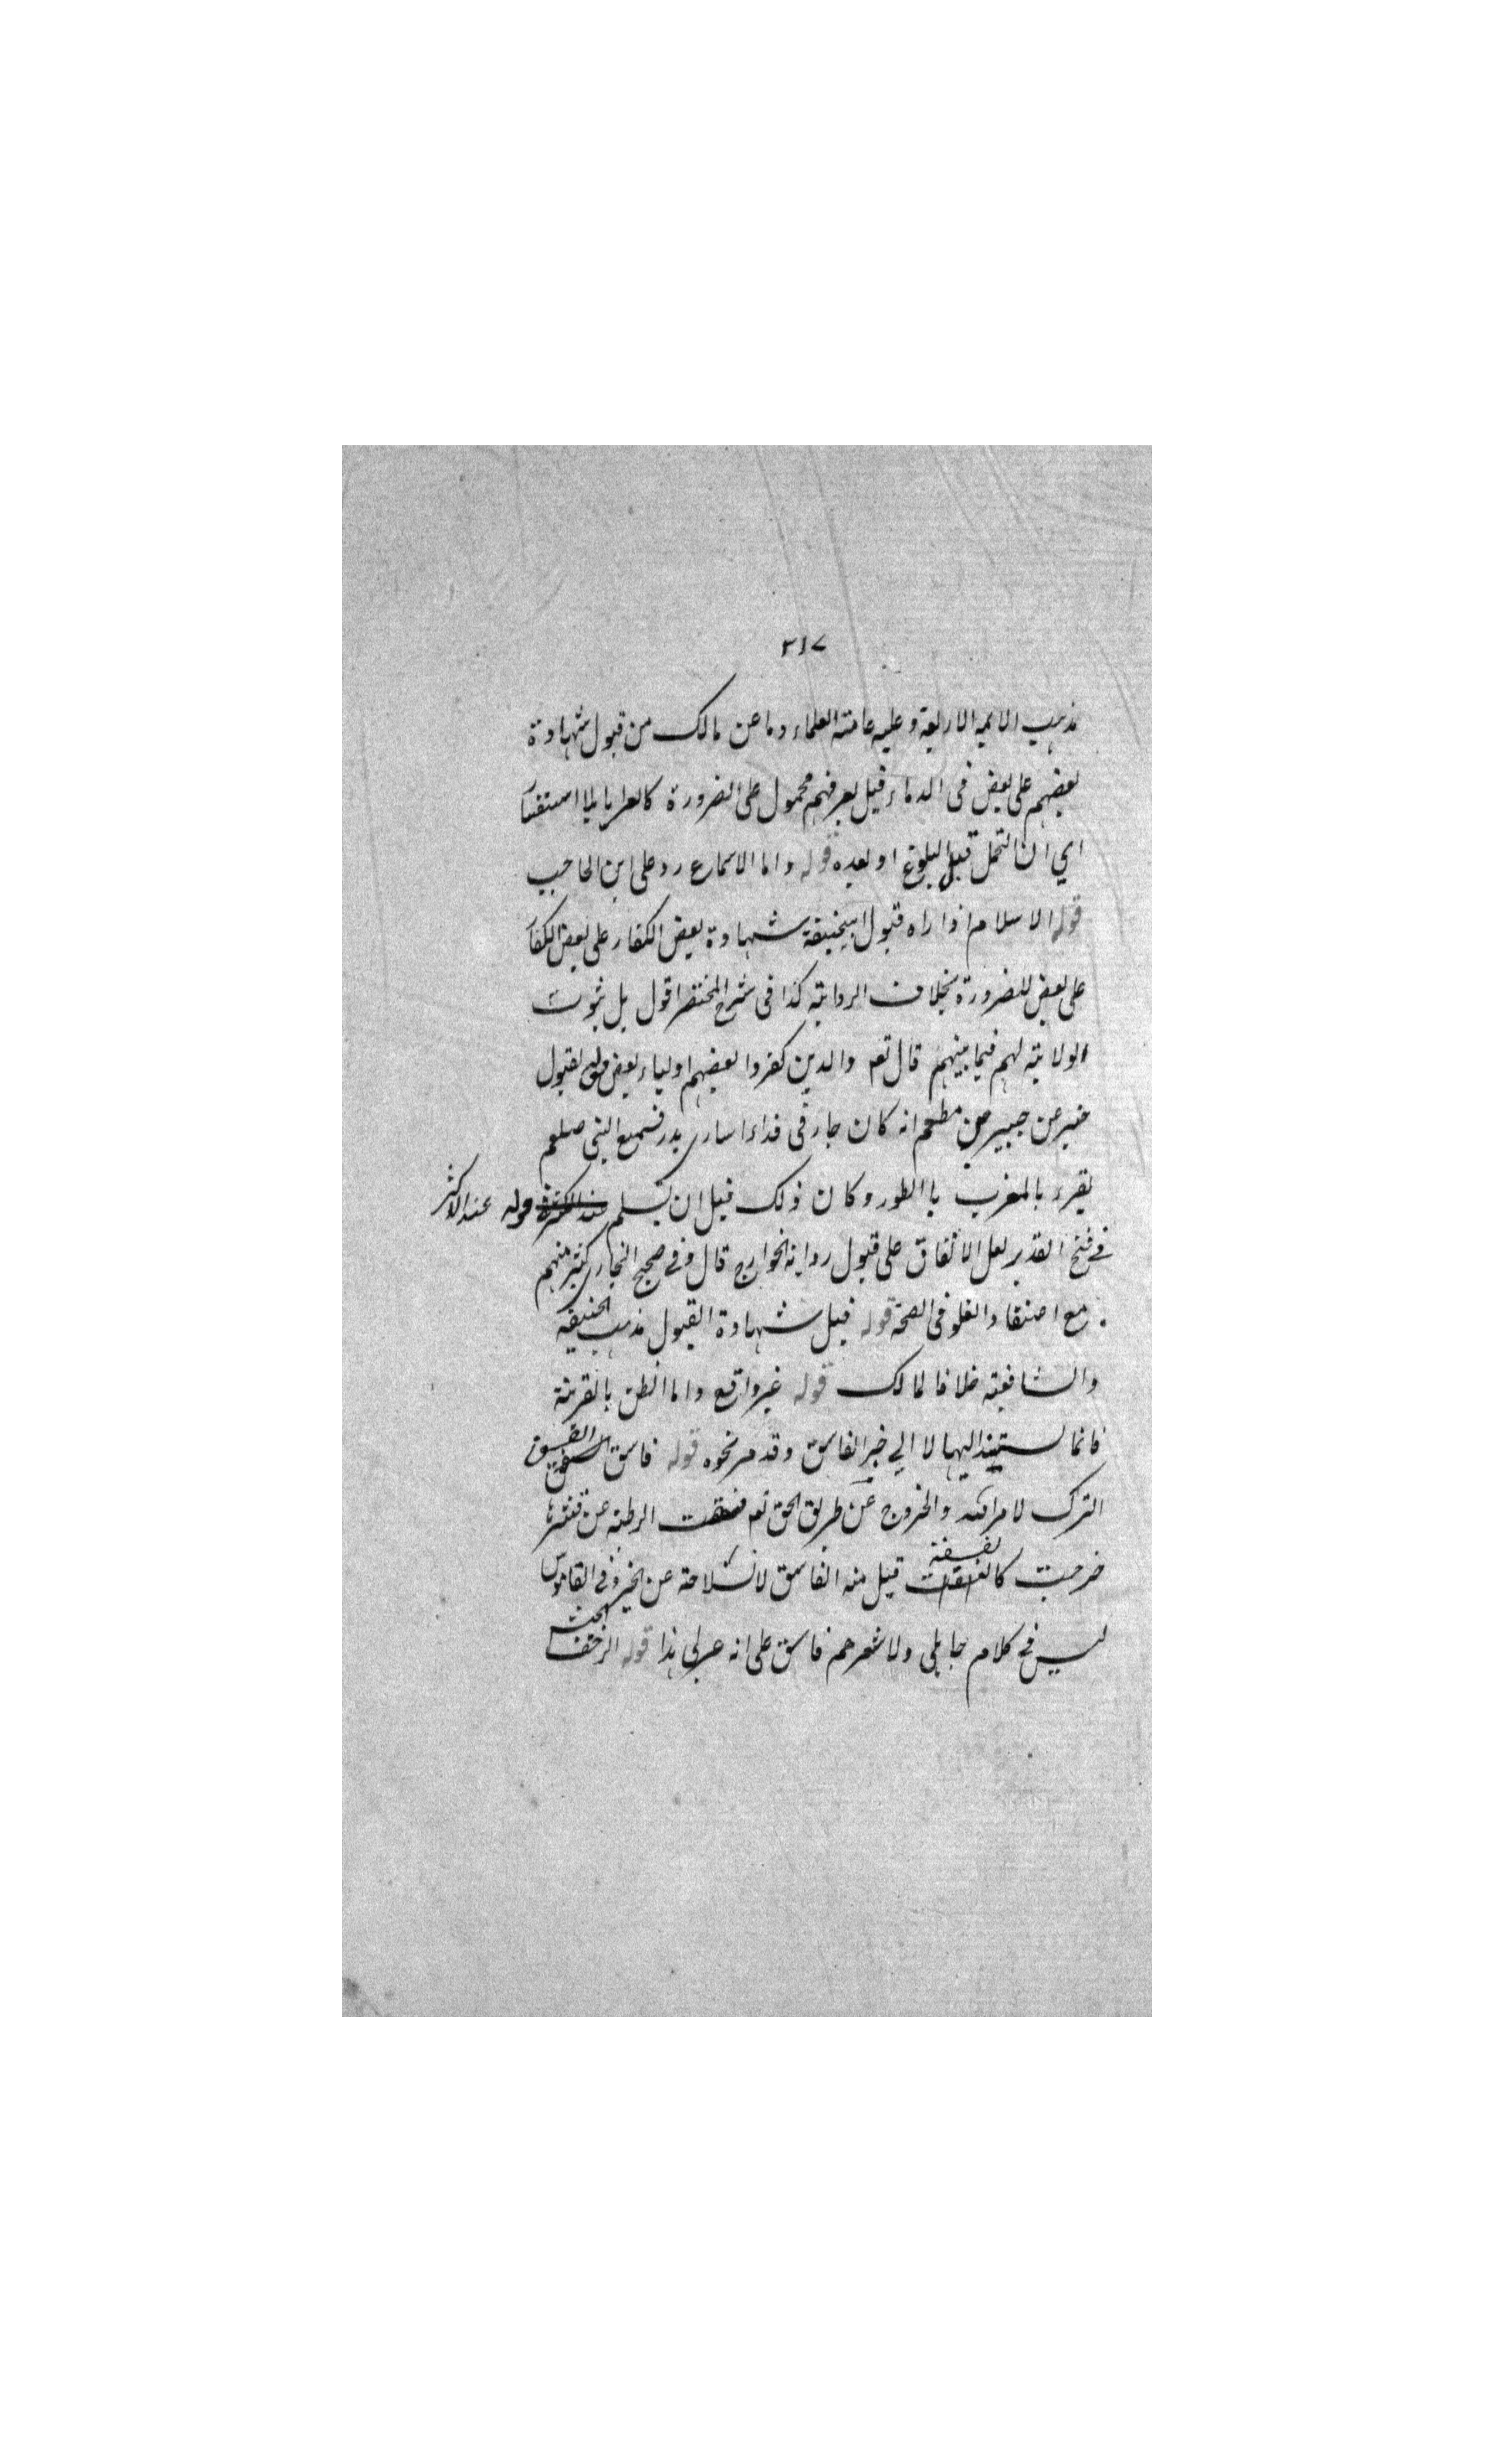 ٣١٧
مذهب الائمه الاربعة وعليه عامته العلماء وما عن مالك من قبول شهادة
بعضهم على بعض فى الدماء قبل تعرفهم محمول على الضرورة كالعرايا لما استفتا
اي ان التحمل قبل البلوغ او بعده قوله واما الاسماع رد على ابن الحاجب
قوله الاسلام اذا راه قبول ابيحنيفة شهادة بعض الكفار على بعض الكفار
على بعض للضرورة بخلاف الروايته كذا فى شرح المختصر اقول بل ثبوت
الولايته لهم فيما بينهم قال تعم والذين كفروا بعضهم اولياء بعض قوله لقبول
خبر عن جبير بن مطعم انه كان جاء فى فداء اسارى بدر فسمع النبى صلعم
يقرء بالمغرب باالطور وكان ذلك قبل ان يسلم قوله عند الاكثر
فے فتح القدير لعل الاتفاق على قبول روايه الخوارج قال وفے صحيح البخارى كثير منهم
مع اعتقاد الغلو فى الصحة قوله قبل شهادة القبول مذهب الحنيفيه
والشافعيته خلافا لمالك قوله غير واقع واما الظن بالقرينة
فانما يستند اليها لا الي خبر الفاسق وقد مر نحوه قوله فاسق الفسق
الترك لامر الله والخروج عن طريق الحق تم فسقت الرطبة عن قشرها
خرجت كانفسقت قيل منه الفاسق لانسلاخه عن الخير وفى القاموس
ليس فے كلام جاهلى ولا شعرهم فاسق على انه عربى هذا قوله الرخف الخبث